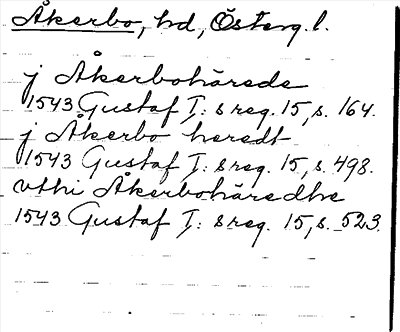 Åkerbo, hd, Österg. l.
j Åkerbohärede
1543 Gustaf I: s reg. 15, s. 164.
j Åkerbo heredt
1543 Gustaf I: s reg. 15, s. 498.
vthi Åkerbohäredhe
1543 Gustaf I: s reg. 15, s. 523.